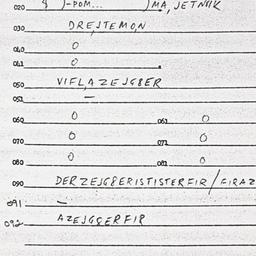 020 8 )-POM... )MA, JETNIK
030 DREJTEMON
040 0
041 0
050 VIFLAZEJG8ER
051 —
060 0 061 0
070 0 071 0
080 0 081 0
090 DERZEJG8ERISTISTERFIR / FIRAZ
091 —
092 AZEJG8ERFIR